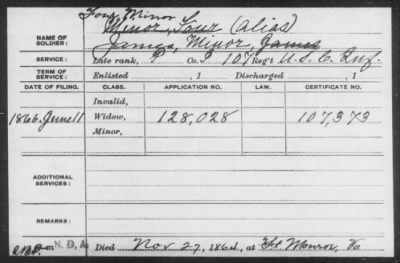 Four Minor
NAME OF SOLDIER: Minor, Four (alias)
James, Minor, James
SERVICE: Late rank, P Co. I 107 Reg't U.S.C. Inf.
TERM OF SERVICE: Enlisted , 1 Discharged , 1
DATE OF FILING. CLASS. APPLICATION NO. LAW. CERTIFICATE NO.
Invalid,
1866 June 11 Widow, 128,028 107,373
Minor,
ADDITIONAL SERVICES:
REMARKS:
N.D.A. Died Nov 27, 1864, at Ft. Monroe, Va